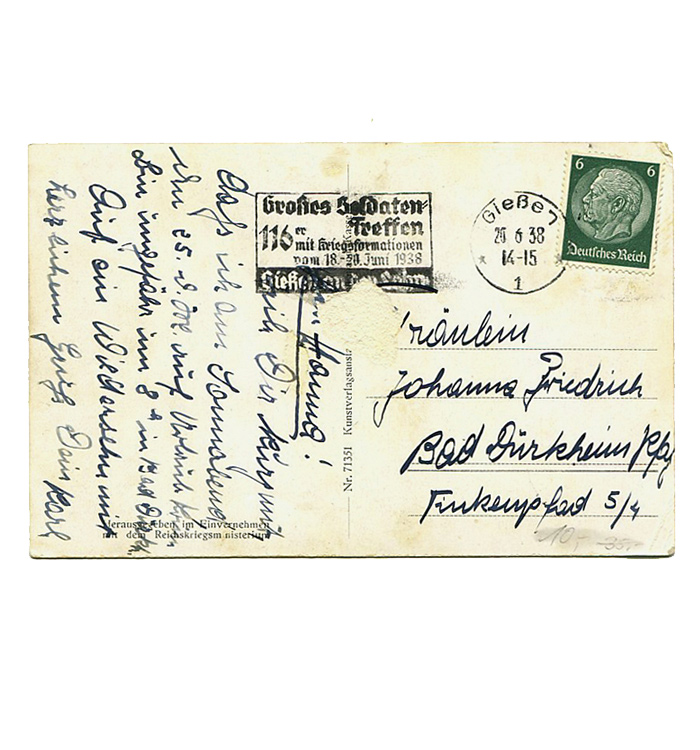 Großes Soldaten=
Treffen
116er mit Kriegsformationen
vom 18.-20. Juni 1938
Gießen an der Lahn
Gießen
20 6 38
14-15
1
6 6
Deutsches Reich
Fräulein
Johanna Friedrich
Bad Dürkheim Pfalz
Finkenpfad 5/4
Hanna!
teile Dir kurz mit
daß ich am Sonnabend
den 25. d. M. auf Urlaub
Bin ungefähr um 8 in Bad Dürk
Auf ein Wiedersehn mit
herzlichem Gruß Dein Karl
Nr. 71351 Kunstverlagsanst
Herausgegeben im Einvernehmen
mit dem Reichskriegsministerium
10,- 35,-